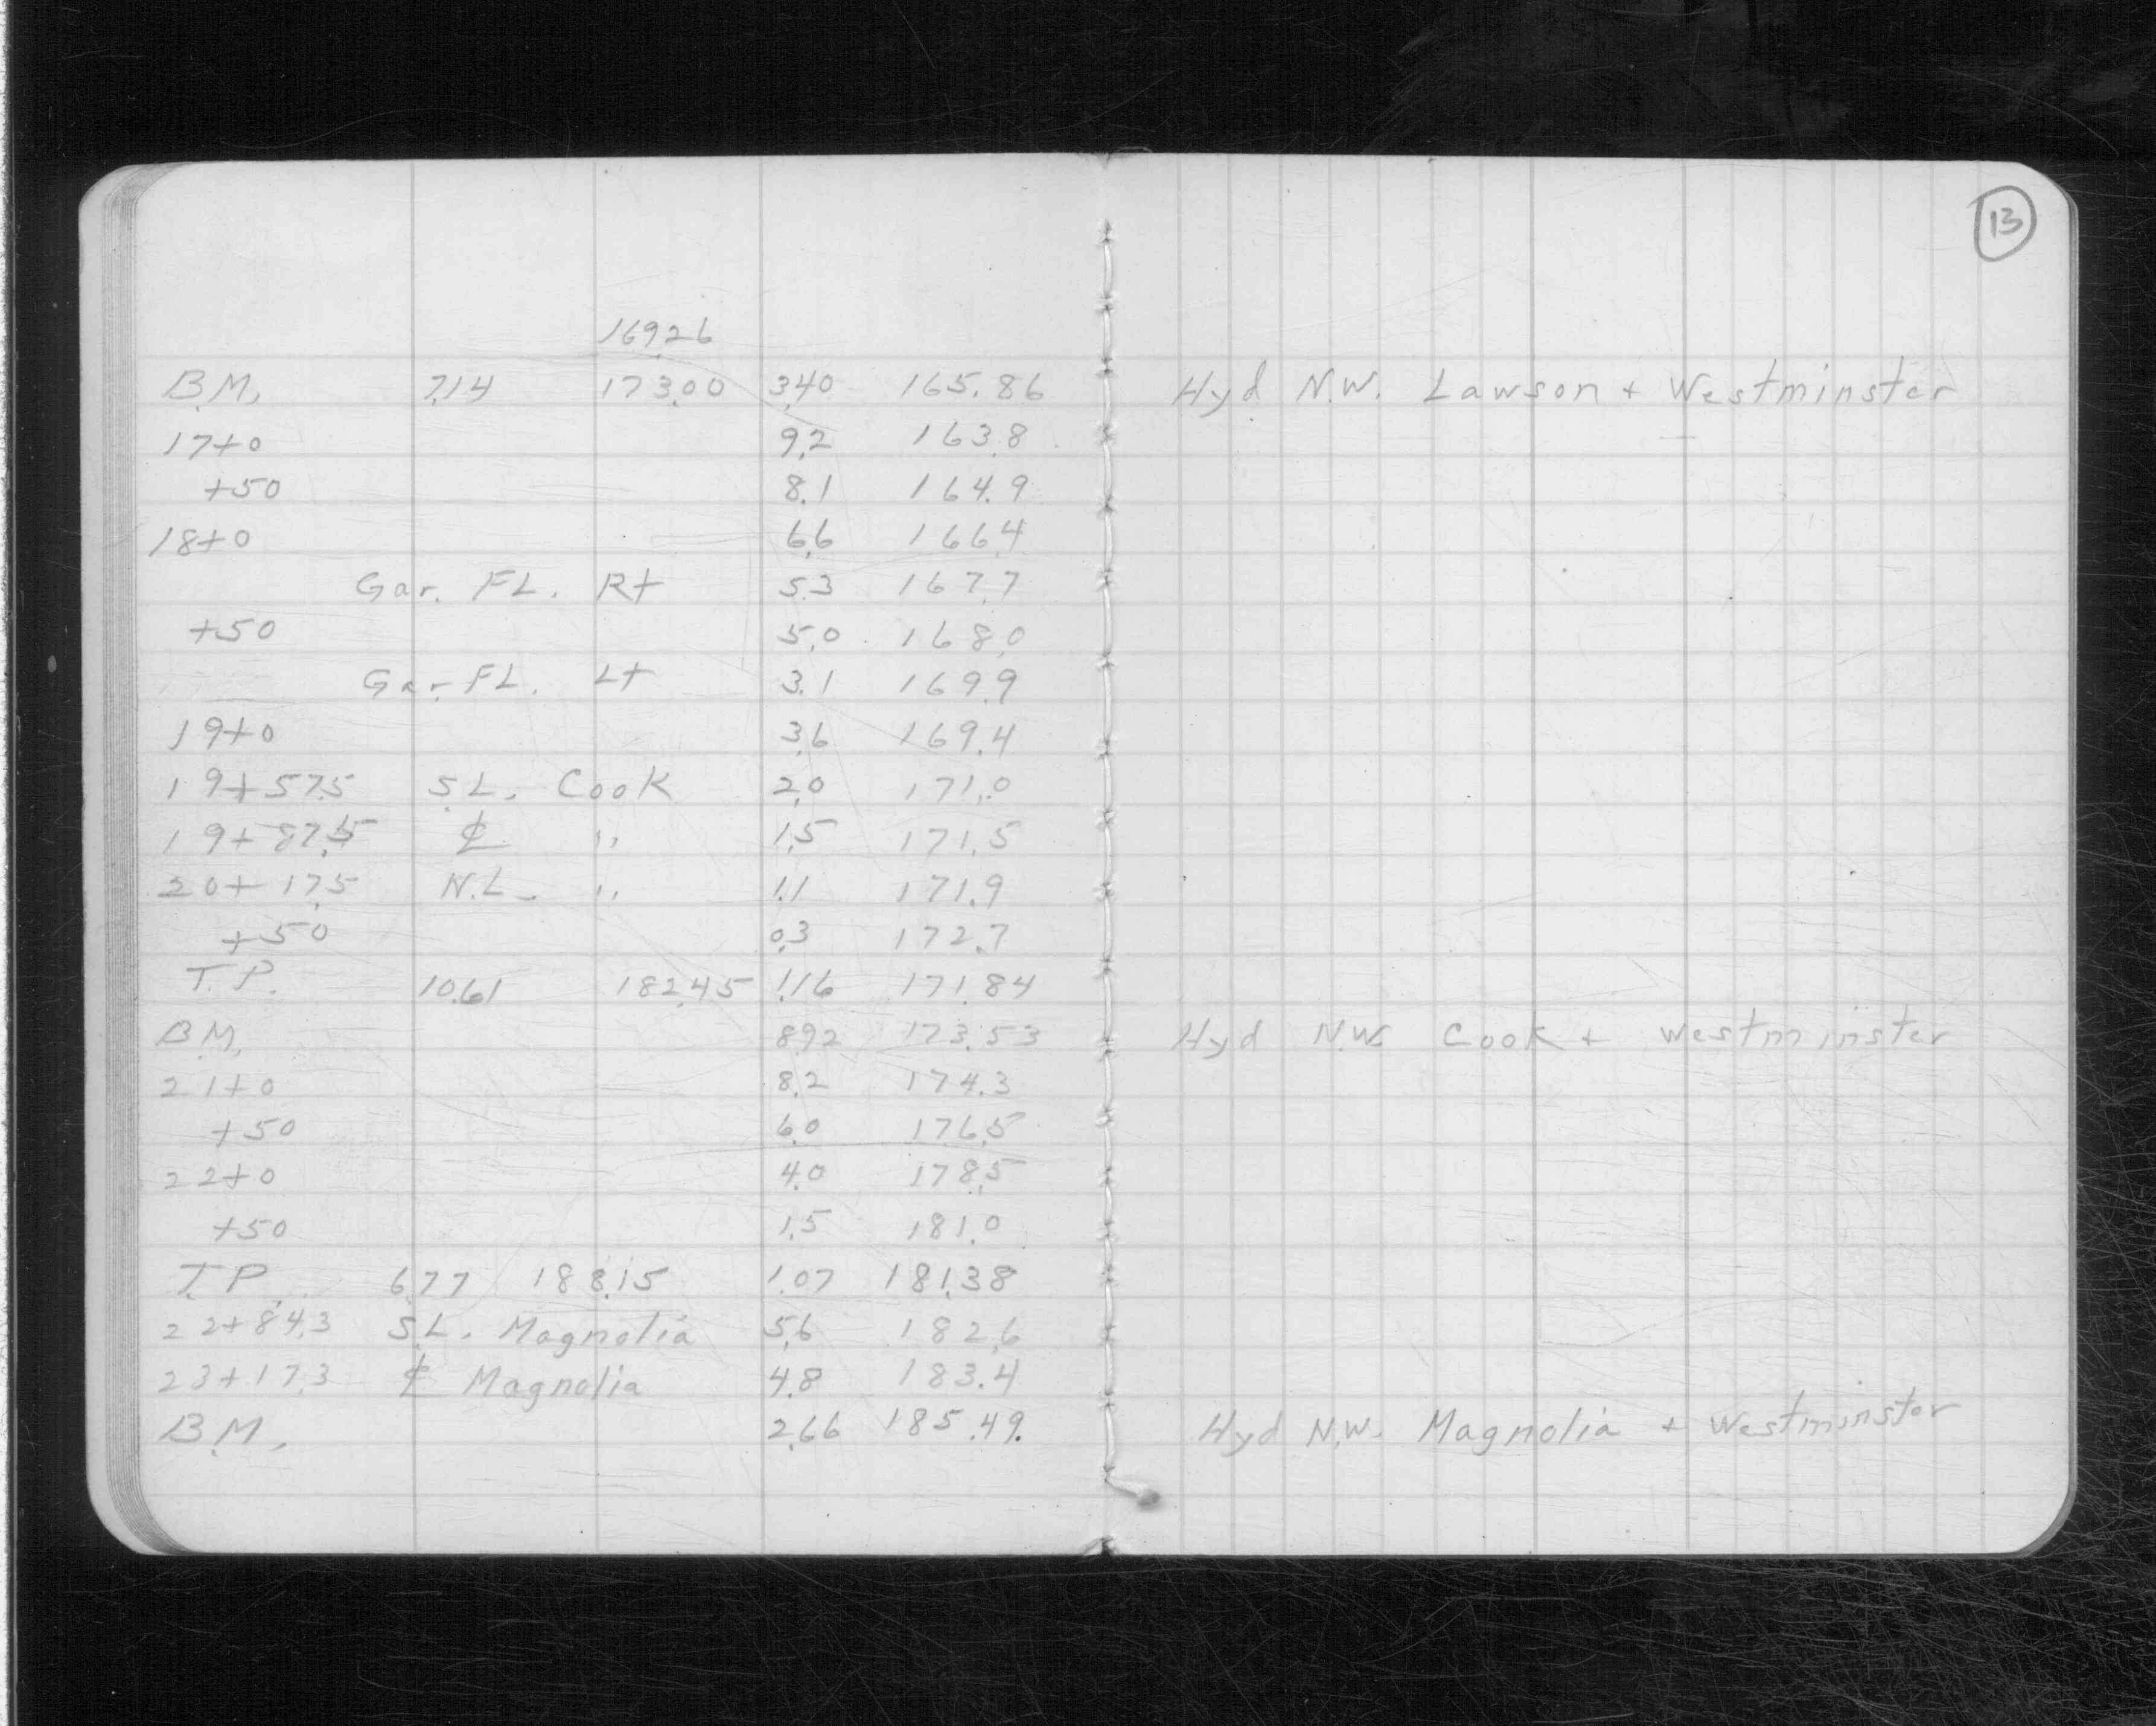 13
169.26
B.M. 7.14 173.00 3.40 165.86 Hyd N.W. Lawson + Westminster
17+0 9.2 163.8
+50 8.1 164.9
18+0 6.6 166.4
Gar. FL. Rt 5.3 167.7
+50 5.0 168.0
Gar. FL. Lt 3.1 169.9
19+0 3.6 169.4
19+57.5 S.L. Cook 2.0 171.0
19+87.5 ℄ " 1.5 171.5
20+17.5 N.L. " 1.1 171.9
+50 0.3 172.7
T.P. 10.61 182.45 1.16 171.84
B.M. 8.92 173.53 Hyd N.W. Cook + Westminster
21+0 8.2 174.3
+50 6.0 176.5
22+0 4.0 178.5
+50 1.5 181.0
T.P. 6.77 188.15 1.07 181.38
22+84.3 S.L. Magnolia 5.6 182.6
23+17.3 ℄ Magnolia 4.8 183.4
B.M. 2.66 185.49 Hyd N.W. Magnolia + Westminster